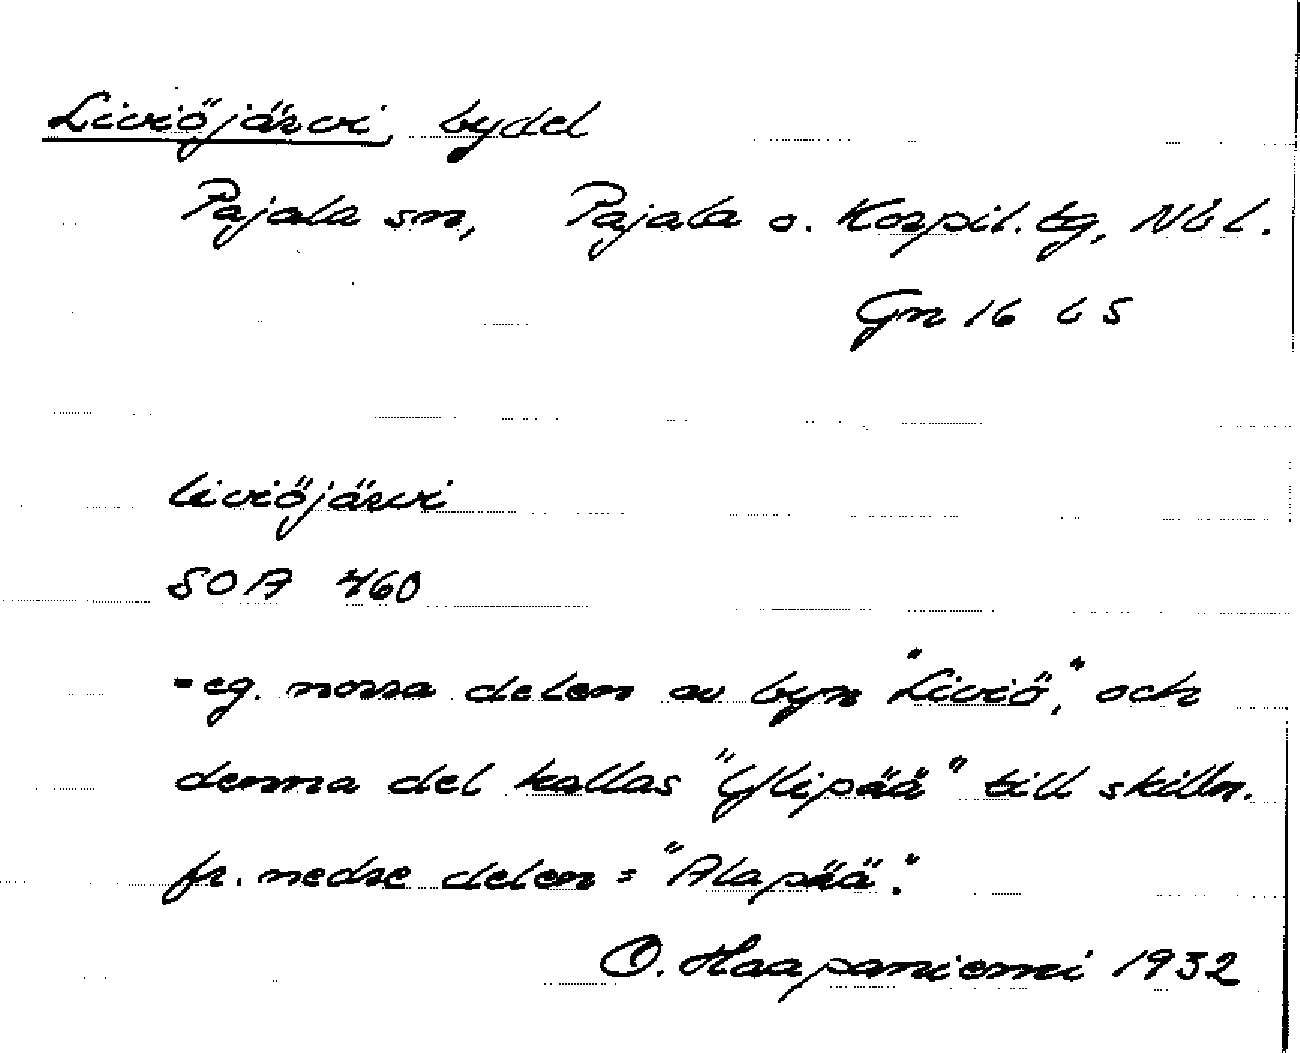 Liviöjärvi, bydel
Pajala sn, Pajala o. Korpil. tg, Nb l.
Gn 16 b 5
liviöjärvi
SOA 460
= eg. norra delen av byn "Liviö", och
denna del kallas "Ylipää" till skilln.
fr. nedre delen = "Alapää".
O. Haapaniemi 1932